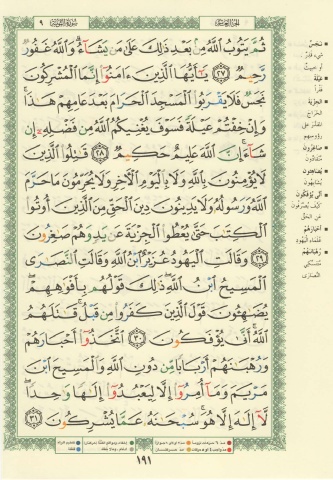 الجزء العاشر
سورة التوبة ٩
ثُمَّ يَتُوبُ اللَّهُ مِنۢ بَعْدِ ذَٰلِكَ عَلَىٰ مَن يَشَآءُ ۗ وَاللَّهُ غَفُورٌ
رَّحِيمٌ ﴿٢٧﴾ يَٰٓأَيُّهَا الَّذِينَ ءَامَنُوٓا۟ إِنَّمَا الْمُشْرِكُونَ
نَجَسٌ فَلَا يَقْرَبُوا۟ الْمَسْجِدَ الْحَرَامَ بَعْدَ عَامِهِمْ هَٰذَا ۚ
وَإِنْ خِفْتُمْ عَيْلَةً فَسَوْفَ يُغْنِيكُمُ اللَّهُ مِن فَضْلِهِۦٓ إِن
شَآءَ ۚ إِنَّ اللَّهَ عَلِيمٌ حَكِيمٌ ﴿٢٨﴾ قَٰتِلُوا۟ الَّذِينَ
لَا يُؤْمِنُونَ بِاللَّهِ وَلَا بِالْيَوْمِ الْءَاخِرِ وَلَا يُحَرِّمُونَ مَا حَرَّمَ
اللَّهُ وَرَسُولُهُۥ وَلَا يَدِينُونَ دِينَ الْحَقِّ مِنَ الَّذِينَ أُوتُوا۟
الْكِتَٰبَ حَتَّىٰ يُعْطُوا۟ الْجِزْيَةَ عَن يَدٍ وَهُمْ صَٰغِرُونَ
﴿٢٩﴾ وَقَالَتِ الْيَهُودُ عُزَيْرٌ ابْنُ اللَّهِ وَقَالَتِ النَّصَٰرَى
الْمَسِيحُ ابْنُ اللَّهِ ۖ ذَٰلِكَ قَوْلُهُم بِأَفْوَٰهِهِمْ ۖ
يُضَٰهِـُٔونَ قَوْلَ الَّذِينَ كَفَرُوا۟ مِن قَبْلُ ۚ قَٰتَلَهُمُ
اللَّهُ ۚ أَنَّىٰ يُؤْفَكُونَ ﴿٣٠﴾ اتَّخَذُوٓا۟ أَحْبَارَهُمْ
وَرُهْبَٰنَهُمْ أَرْبَابًا مِّن دُونِ اللَّهِ وَالْمَسِيحَ ابْنَ
مَرْيَمَ وَمَآ أُمِرُوٓا۟ إِلَّا لِيَعْبُدُوٓا۟ إِلَٰهًا وَٰحِدًا ۖ
لَّآ إِلَٰهَ إِلَّا هُوَ ۚ سُبْحَٰنَهُۥ عَمَّا يُشْرِكُونَ ﴿٣١﴾
١٩١
نجس
عيلة
فقراً
الجزية
الخراج
صاغرون
يضاهئون
يشابهون
أنى يؤفكون
أحبارهم
علماء اليهود
رهبانهم
النصارى